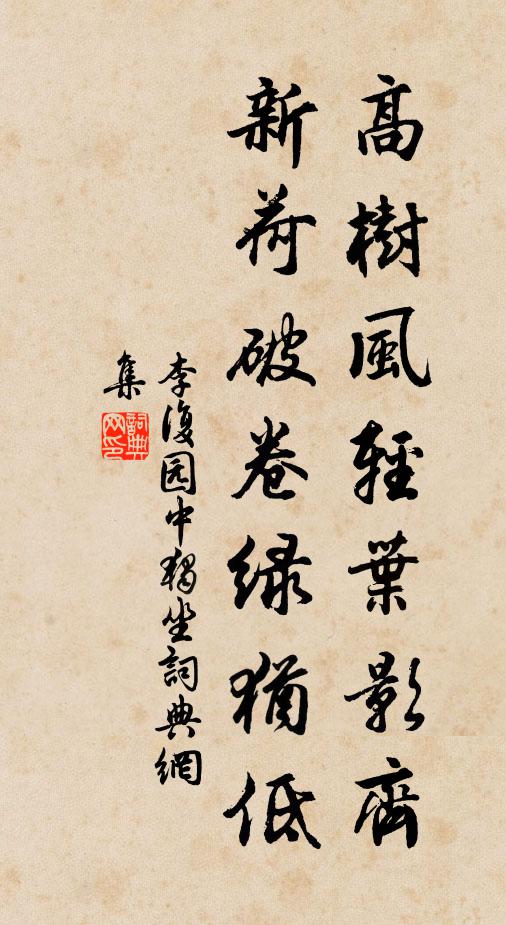 高樹風輕葉影齊
新荷破卷緑猶低
李復园中獨坐詞典網
集
詞典
网印